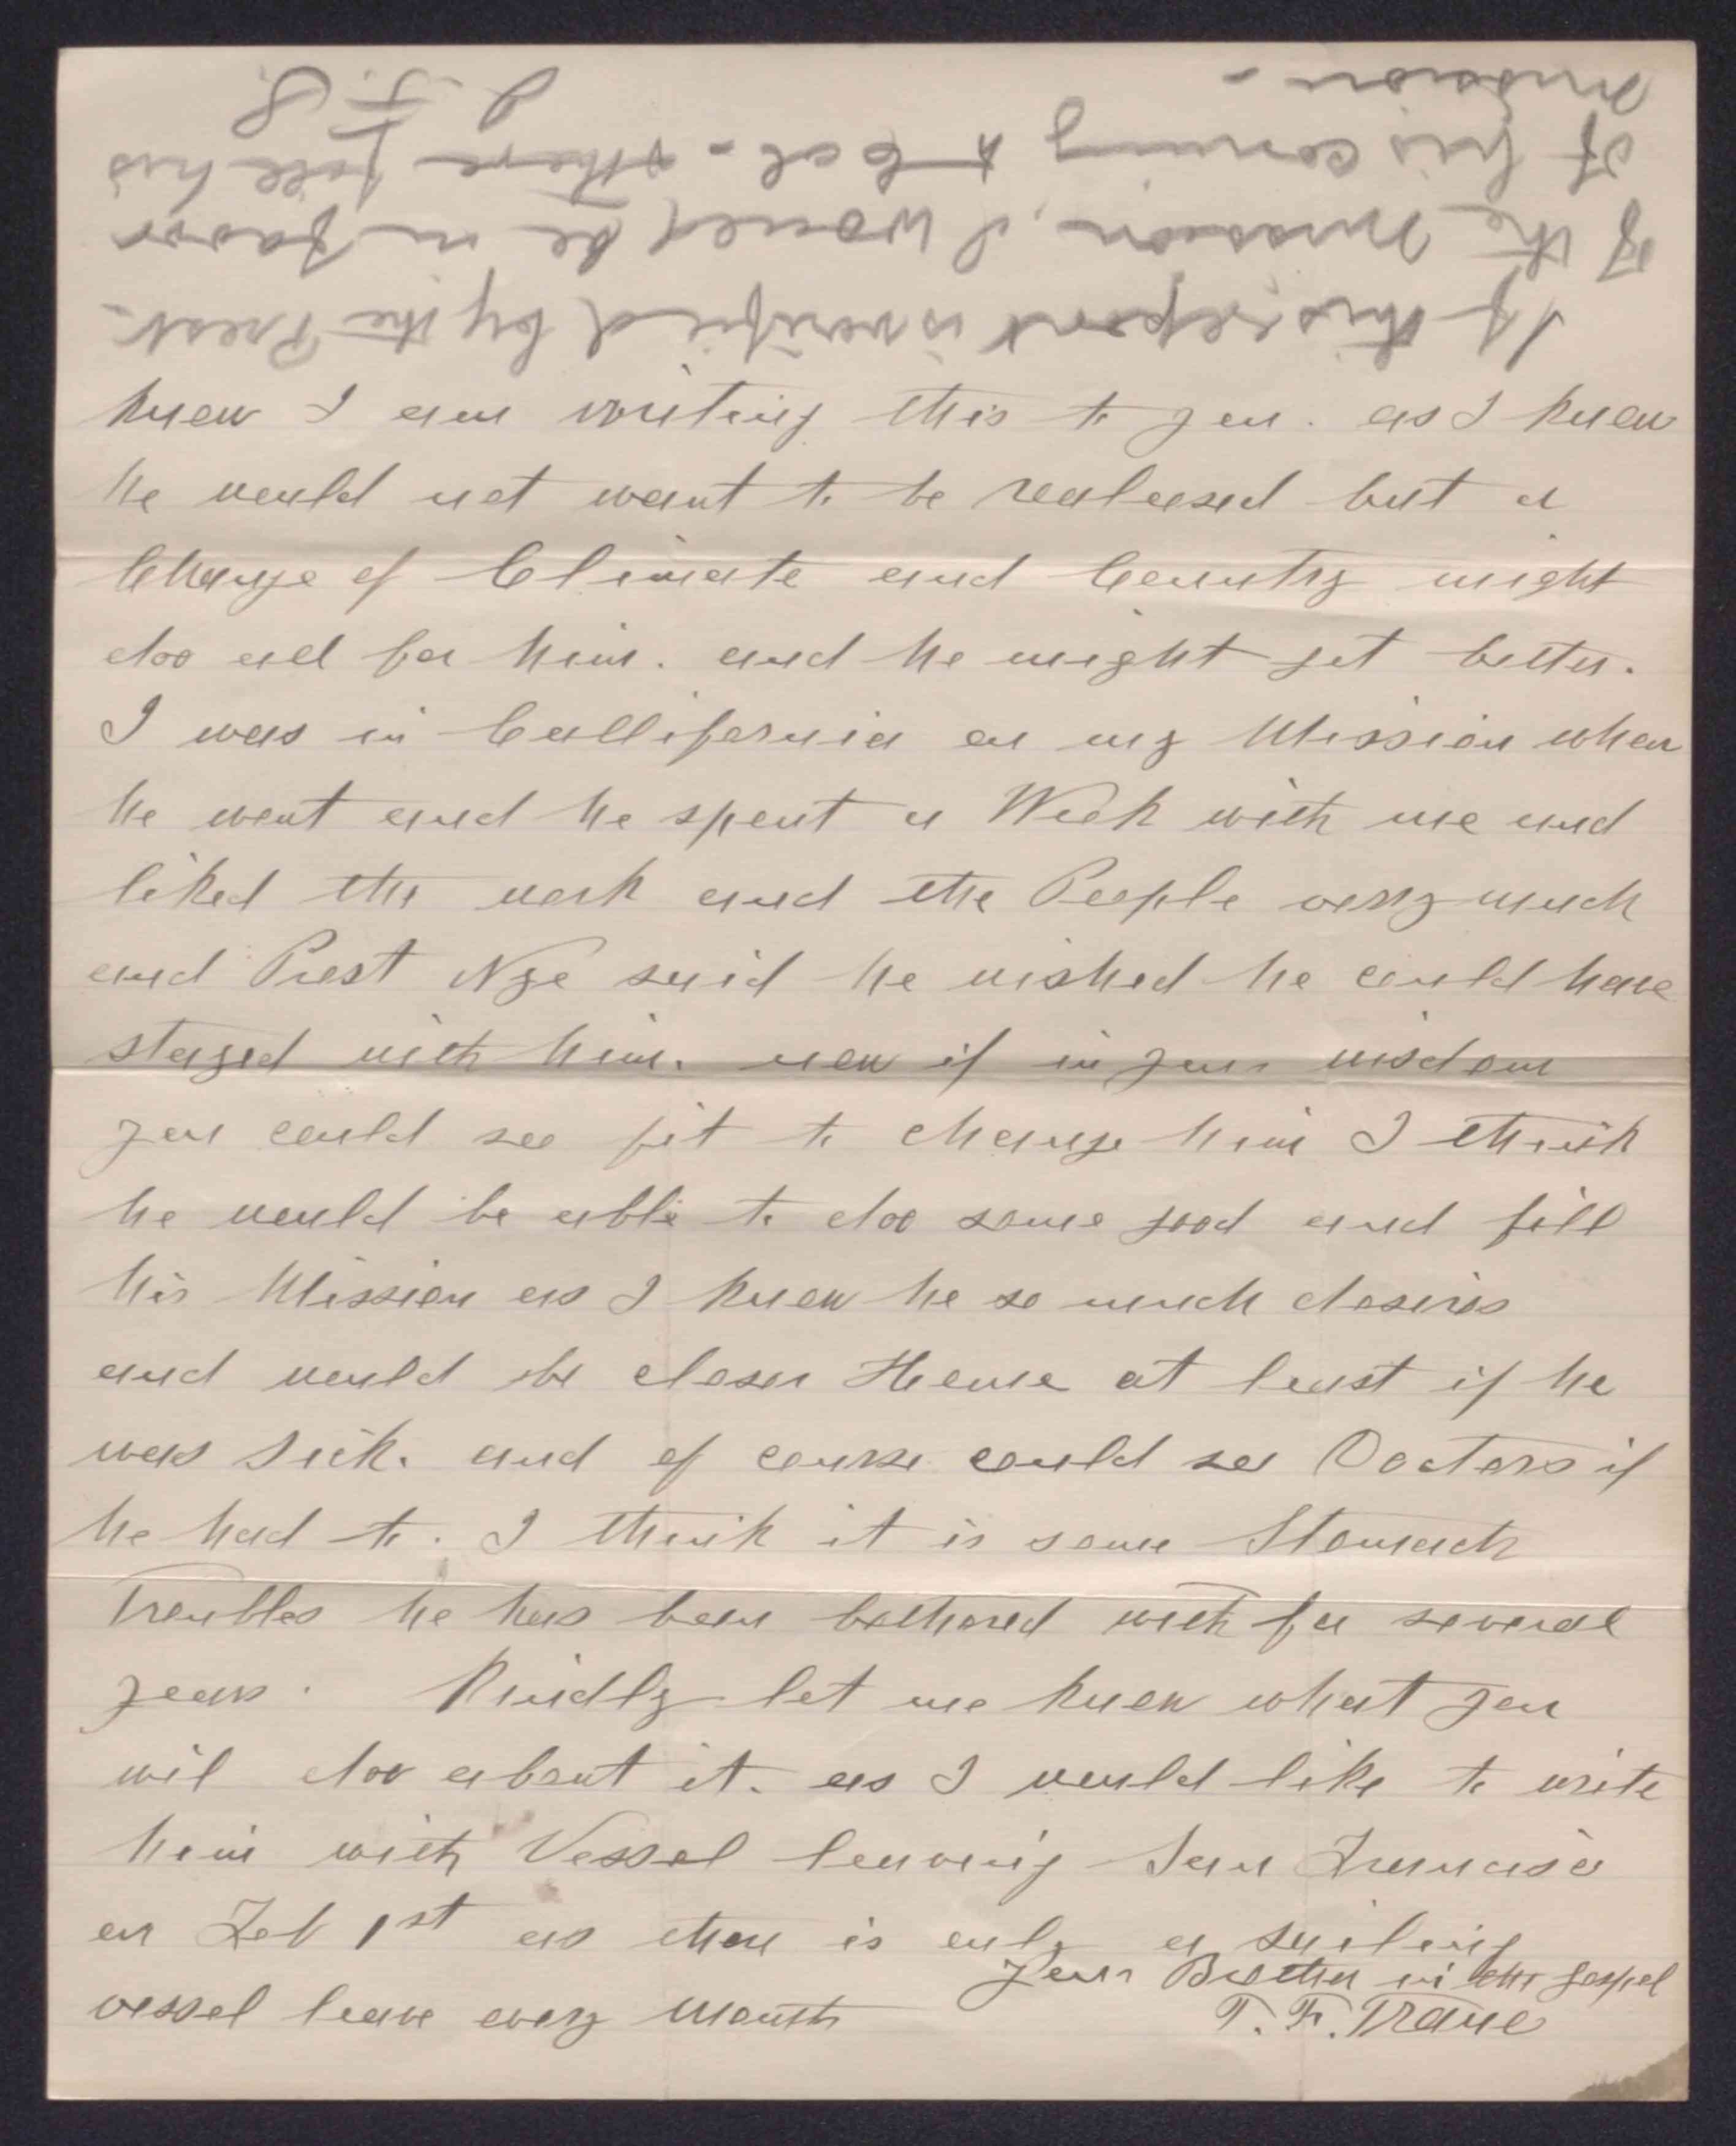 If this report is verified by the Prest.
of the mission, I would be in favor
of his coming to Cal. & there fill his
mission -
J. F. S.
know I am writing this to you. as I know
he would not want to be realeesed but a
Change of Climate and Country might
doo all for him. and he might get better.
I was in Callifornia on my Mission when
he went and he spent a Week with me and
liked the work and the People very much
and Prest Nye said he wished he could have
stayed with him. now if in your wisdom
you could see fit to change him I think
he would be able to doo some good and fill
his Mission as I know he so much desires
and would be closer Home at least if he
was Sick. and of course could see Doctors if
he had to. I think it is some Stomach
Troubles he has been bothored with for several
years. Kindly let me know what you
wil doo about it. as I would like to write
him with Vessel leaving San Francisco
on Feb 1st as ther is only a sailing
vessel leave every month
Your Brother in the gospel
T. F. Trane